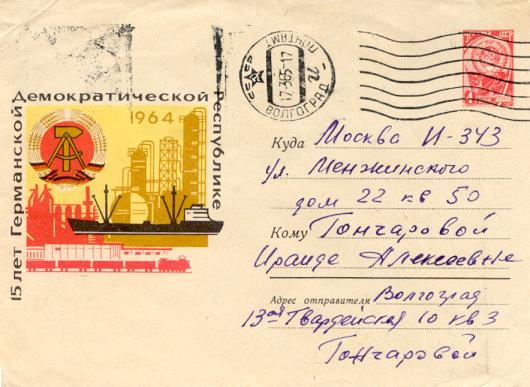 15 лет Германской Демократической Республике
1964
ПОЧТАМТ
17365-17
ВОЛГОГРАД
Куда Москва И-343
ул. Менжинского
дом 22 кв 50
Кому Гончаровой
Ираиде Алексеевне
Адрес отправителя Волгоград
13ая Гвардейская 10 кв 3
Гончаровой